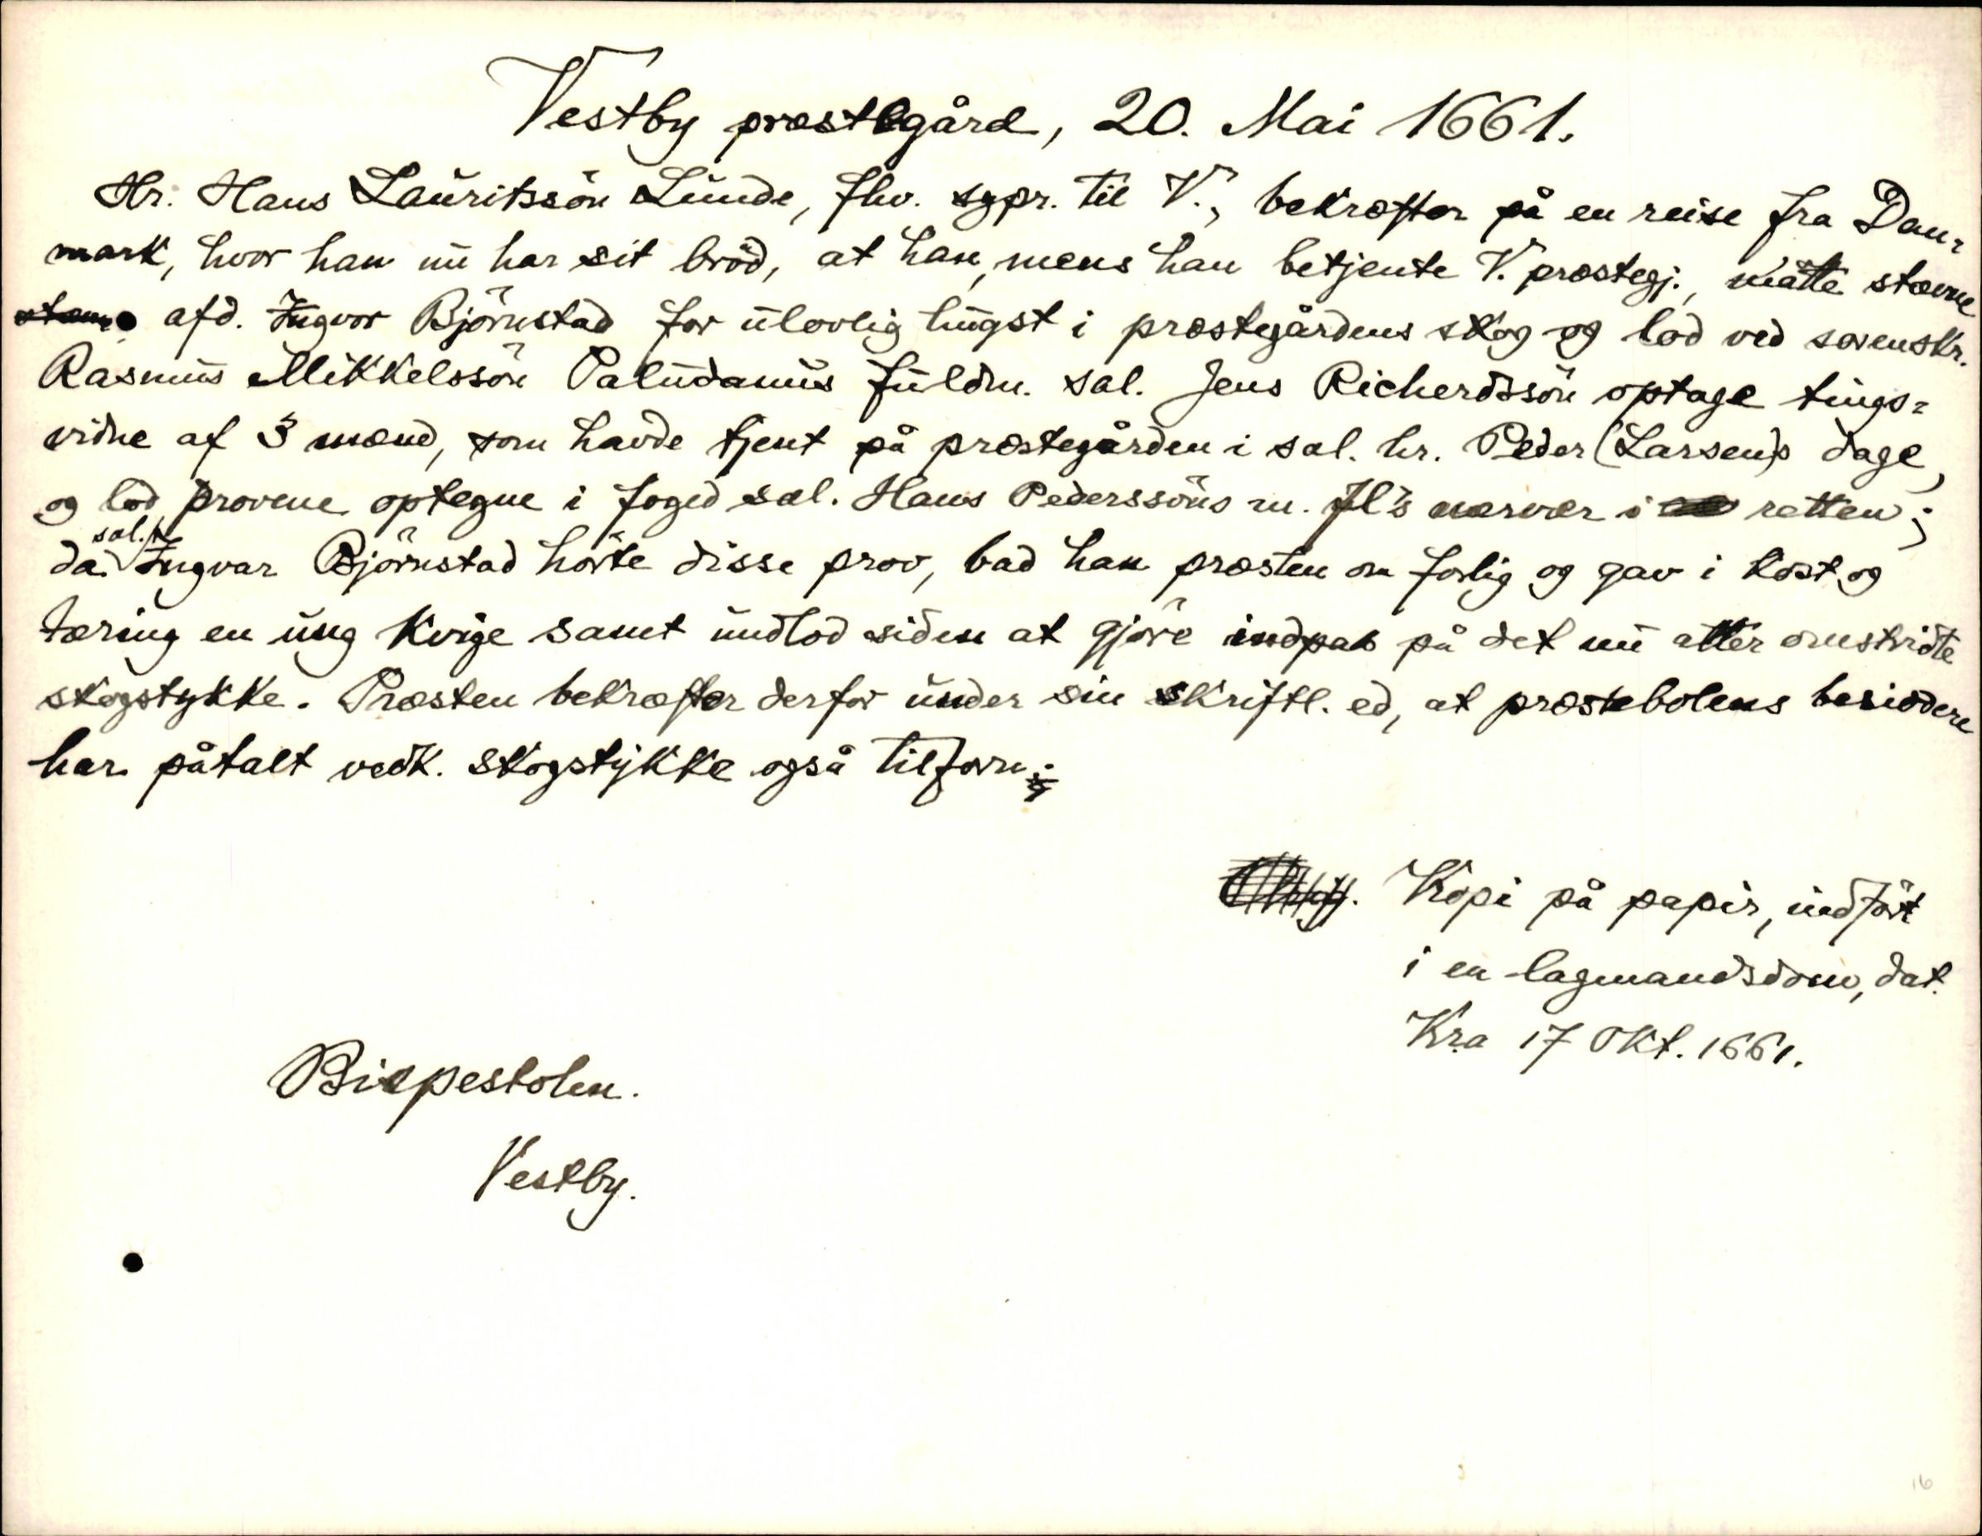 Vestby præstegård, 20. Mai 1661.
Hr. Hans Lauritssön Lunde, fhv. sgpr. til V., bekræfter på en reise fra Dan-
mark, hvor han nu har sit bröd, at han, mens han betjente V. præstegj., måtte stævne
afd. Ingvor Björnstad for ulovlig hugst i præstegårdens skog og lod ved sorenskr.
Rasmus Mikkelssön Paludanus fuldm. sal. Jens Richerdssön optage tings=
vidne af 3 mænd, som havde tjent på præstegården i sal. hr. Peder (Larsen)s dage,
og lod provene optegne i foged sal. Hans Pederssöns m. fl's nærvær i retten;
da sal. Ingvar Björnstad hörte disse prov, bad han præsten om forlig og gav i kost og
tæring en ung kvige samt undlod siden at gjöre indpas på det nu atter omstridte
skogstykke. Præsten bekræfter derfor under sin skriftl. ed, at præstebolens besiddere
har påtalt vedk. skogstykke også tilforn.
Kopi på papir, indfört
i en lagmandsdom, dat.
Kra 17 Okt. 1661.
Bispestolen.
Vestby.
16